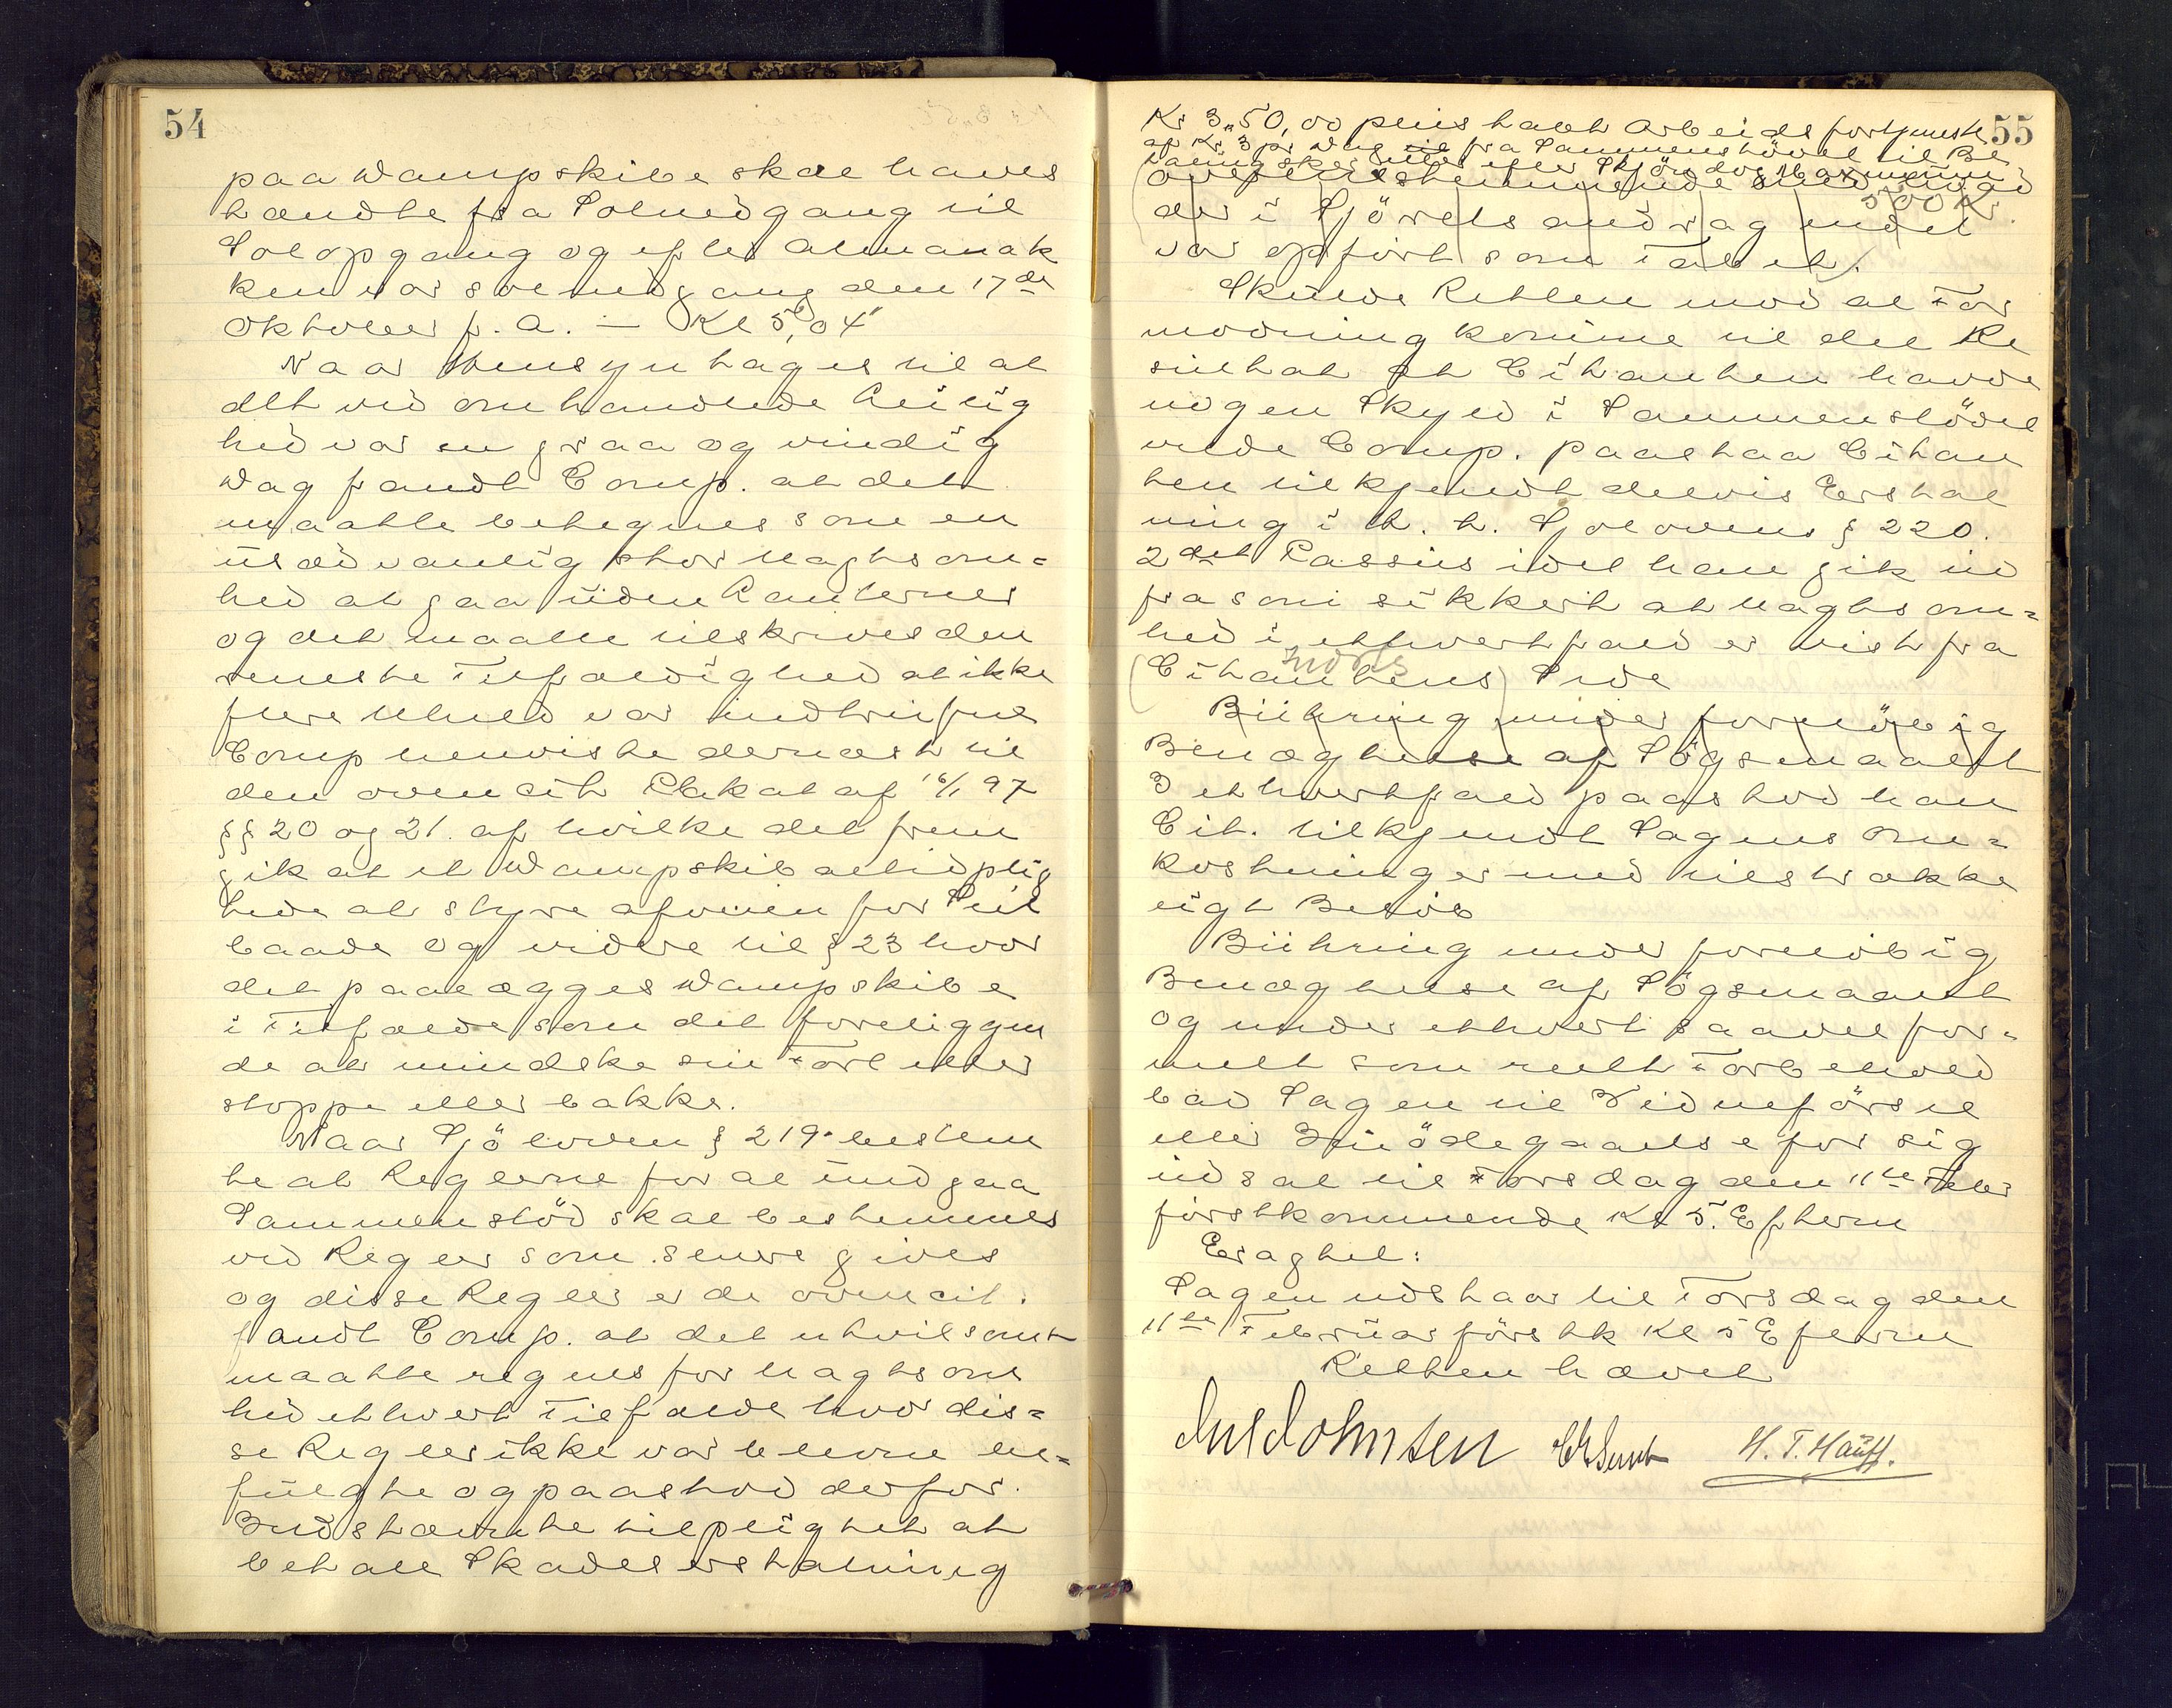 54
paa Dampskibe skal haves
tændte fra Solnedgang til
Solopgang og efter Almanak
ken var solnedgang den 17de
Oktober f. A. — Kl 5,04
Naar Hensyn tages til at
det ved omhandlede Leilig
hed var en graa og vindig
Dag fandt Comp. at det
maatte betegnes som en
usædvanlig stor Uagtsom=
hed at gaa uden Lanterner
og det maatte tilskrives den
reneste Tilfældighed at ikke
flere Uheld var indtrufne
Comp henviste dernæst til
den ovencit Plakat af 16/1 97
§§ 20 og 21. af hvilke det frem
gik at et Dampskib altid plig
tede at styre afveien for Seil
baade og videre til § 23 hvor
det paalægges Dampskibe
i Tilfælde som det foreliggen
de at mindske sin Fart eller
stoppe eller bakke.
Naar Sjöloven § 219 bestem
te at Reglerne for at undgaa
Sammenstöd skal bestemmes
ved Regler som senere gives
og disse Regler er de ovencit.
fandt Comp. at det utvilsomt
maatte regnes for Uagtsom
hed ethvert Tilfælde hvor dis=
se Regler ikke var bleven ef=
fulgte og paastod derfor
Indstævnte tilpligtet at
betale Skadeserstatning
55
Kr 3,,50,00 plus tabt Arbeidsfortjeneste
af Kr. 3 pr Dag fra Sammenstödet til Be
taling sker efter Skjön dog Maximum
500 Kr.
overensstemmende med hvad
der i Sjörets andrag endel
var opfört som Tabet.
Skulde Retten mod al For
modning komme til det Re
sultat at Citanten havde
nogen Skyld i Sammenstödet
vilde Comp. paastaa Citan
ten tilkjendt delvis Erstat
ning i h. t. Sjölovens § 220.
2det Passus idet han gik ud
fra som sikkert at Uagtsom=
hed i ethvert fald er vist fra
Indst's
(Citantens) Side
Bühring under foreløbig
Benægtelse af Sögsmaalet
I ethvertfald paastod han
Cit. tilkjendt Sagens Om=
kostninger med tilstrække
ligt Beløb
Bühring under foreløbig
Benægtelse af Sögsmaalet
og under ethvert saavel for=
melt som reelt Forbehold
bad Sagen til Vidneförsel
eller Imödegaaelse for sig
udsat til Torsdag den 11te Febr
förstkommende Kl 5. Efterm
Eragtet:
Sagen udstaar til Torsdag den
11te Februar förstk Kl 5 Efterm
Retten hævet
H. T. Hauff.